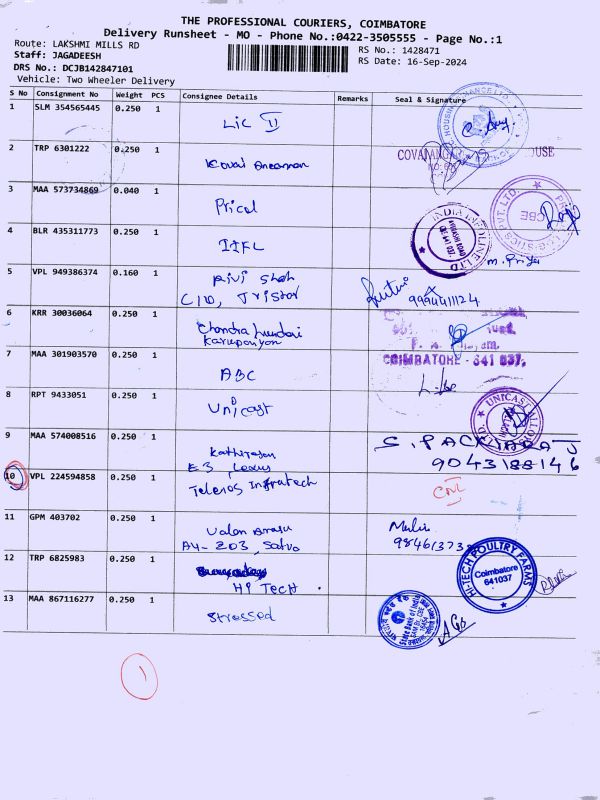 THE PROFESSIONAL COURIERS, COIMBATORE
Delivery Runsheet - MO - Phone No.:0422-3505555 - Page No.:1
Route: LAKSHMI MILLS RD
RS No.: 1428471
Staff: JAGADEESH
RS Date: 16-Sep-2024
DRS No.: DCJB142847101
Vehicle: Two Wheeler Delivery
S No Consignment No Weight PCS Consignee Details Remarks Seal & Signature
1 SLM 354565445 0.250 1
LIC II
2 TRP 6301222 0.250 1
Kovai
3 MAA 573734869 0.040 1
Pricol
4 BLR 435311773 0.250 1
IIFL
INDIA INFOLINE LTD
CBE
m. Priya
5 VPL 949386374 0.160 1
Rivi Shah
CID, Tristar
9994411124
6 KRR 30036064 0.250 1
Chandra
COIMBATORE - 641 037.
7 MAA 301903570 0.250 1
ABC
8 RPT 9433051 0.250 1
Unicast
9 MAA 574008516 0.250 1
Kathiresan
E3, Lexus
9043188146
10 VPL 224594858 0.250 1
Telenos Infratech
11 GPM 403702 0.250 1
A4-203, Satva
12 TRP 6825983 0.250 1
Hi Tech
HI-TECH POULTRY FARMS
Coimbatore
641037
13 MAA 867116277 0.250 1
Stressed
State Bank of India
1